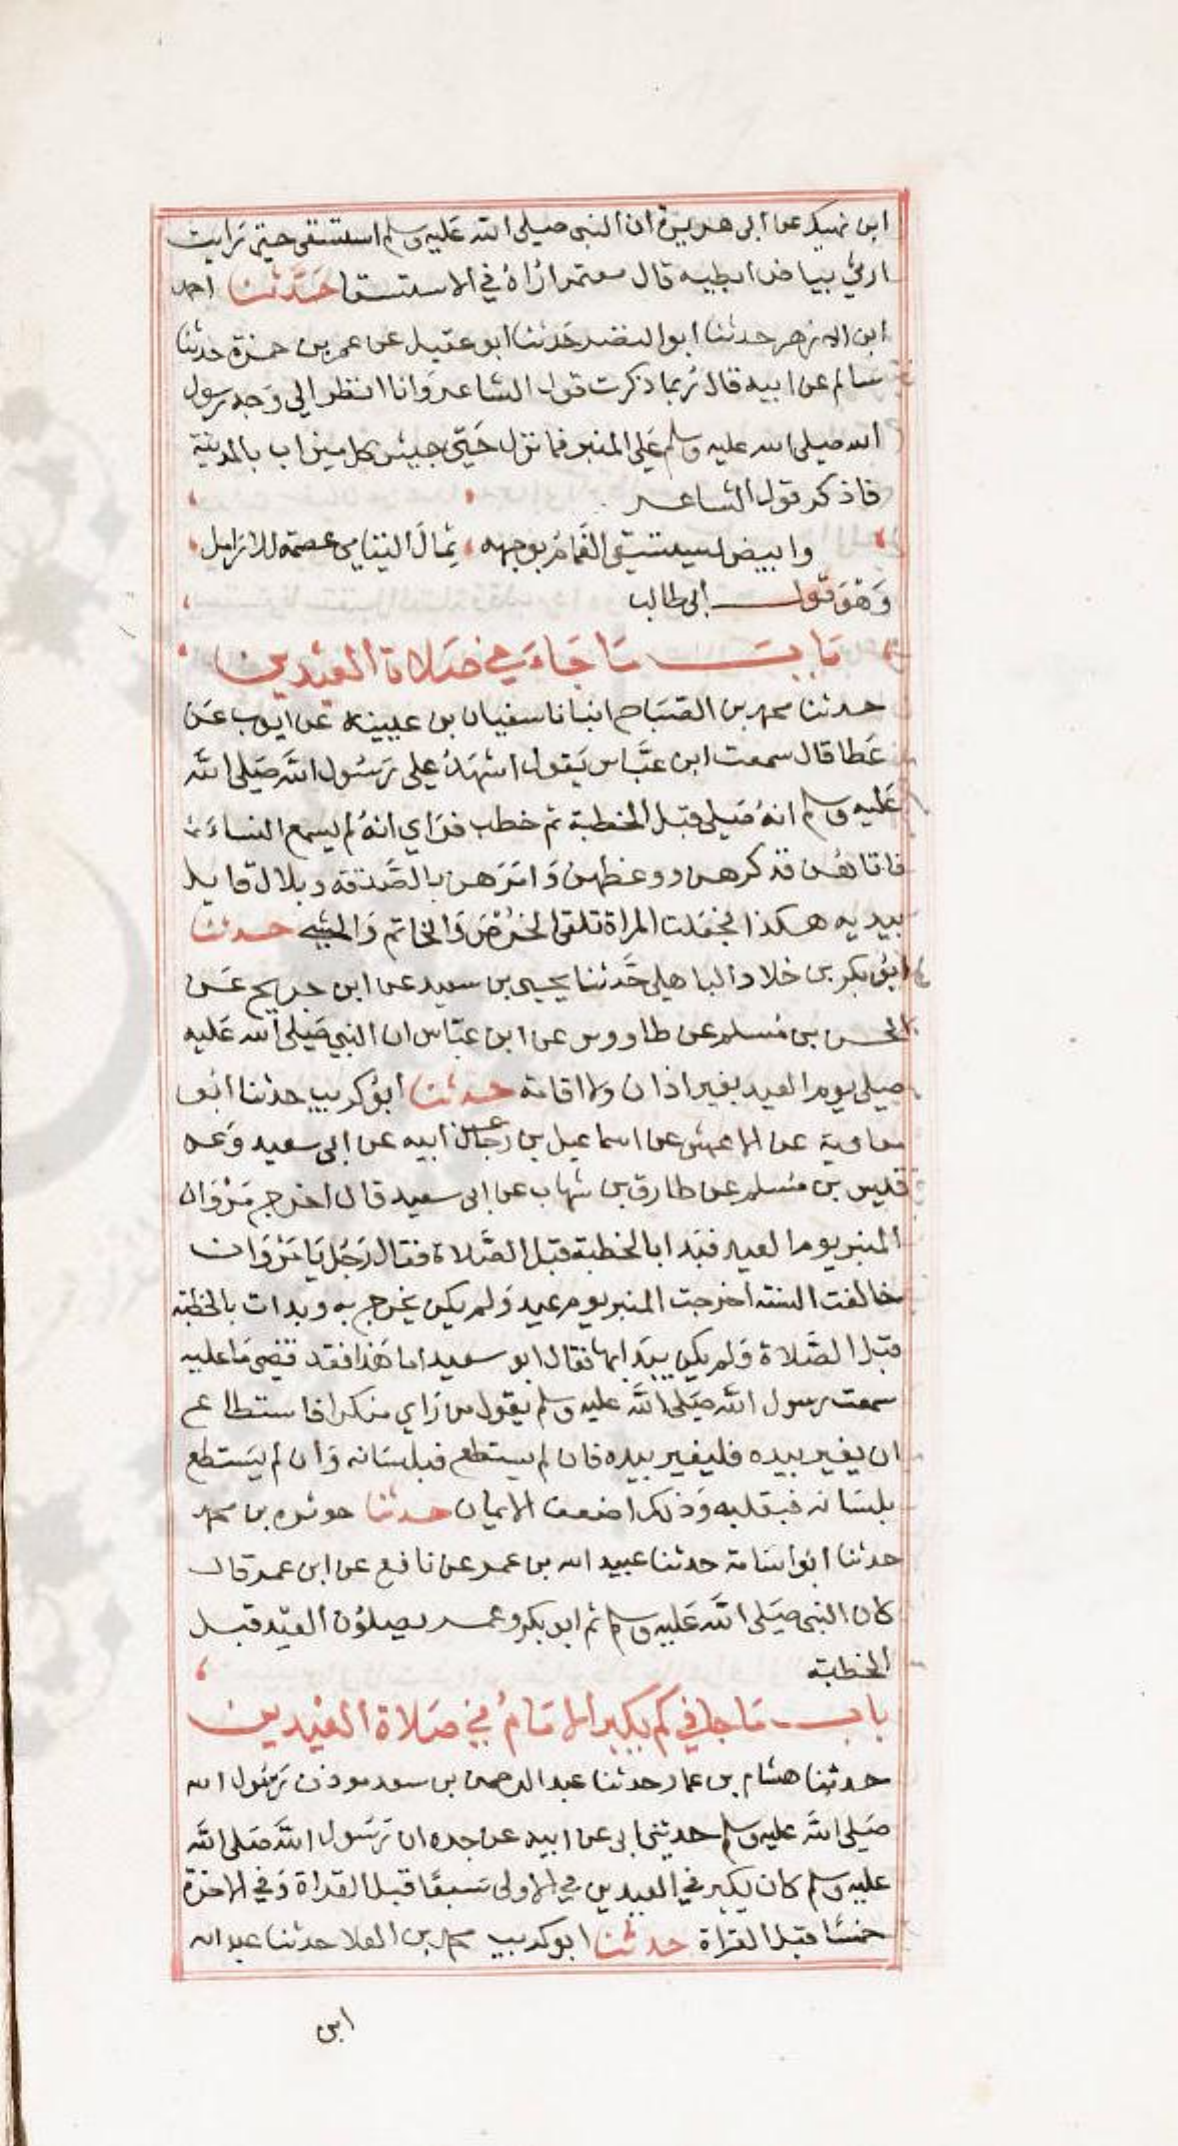 ابن نهيك عن ابي هريرة ان النبي صلى الله عليه وسلم استسقى حتى رايت
او رئي بياض ابطيه قال معتمر اراه في الاستسقا حدثنا احمد
ابن الازهر حدثنا ابو النضر حدثنا ابو عقيل عن عمر بن حمزة حدثنا
سالم عن ابيه قال ربما ذكرت قول الشاعر وانا انظر الي وجه رسول
الله صلى الله عليه وسلم على المنبر فما نزل حتى جيش كل ميزاب بالمدينة
فاذكر قول الشاعر
وابيض يستسقى الغمام بوجهه ثمال اليتامى عصمة للارامل
وهو قول ابي طالب
باب ما جاء في صلاة العيدين
حدثنا محمد بن الصباح انبانا سفيان بن عيينه عن ايوب عن
عطا قال سمعت ابن عباس يقول اشهد على رسول الله صلى الله
عليه وسلم انه صلى قبل الخطبة ثم خطب فراي انه لم يسمع النساء
فاتاهن فذكرهن ووعظهن وامرهن بالصدقه وبلال قايل
بيديه هكذا فجعلت المراة تلقى الخرص والخاتم والشي حدثنا
ابو بكر بن خلاد الباهلي حدثنا يحيى بن سعيد عن ابن جريج عن
الحسن بن مسلم عن طاووس عن ابن عباس ان النبي صلى الله عليه
صلى يوم العيد بغير اذان ولا اقامة حدثنا ابو كريب حدثنا ابو
معاوية عن الاعمش عن اسماعيل بن رجا عن ابيه عن ابي سعيد وعن
قيس بن مسلم عن طارق بن شهاب عن ابي سعيد قال اخرج مروان
المنبر يوم العيد فبدا بالخطبة قبل الصلاة فقال رجل يا مروان
خالفت السنة اخرجت المنبر يوم عيد ولم يكن يخرج به وبدات بالخطبة
قبل الصلاة ولم يكن يبدا بها فقال ابو سعيد اما هذا فقد قضى ما عليه
سمعت رسول الله صلى الله عليه وسلم يقول من راي منكرا فاستطاع
ان يغير بيده فليغير بيده فان لم يستطع فبلسانه وان لم يستطع
بلسانه فبقلبه وذلك اضعف الايمان حدثنا حوثره بن محمد
حدثنا ابو اسامة حدثنا عبيد الله بن عمر عن نافع عن ابن عمر قال
كان النبي صلى الله عليه وسلم ثم ابو بكر وعمر يصلون العيد قبل
الخطبة
باب ما جا في كم يكبر الامام في صلاة العيدين
حدثنا هشام بن عمار حدثنا عبد الرحمن بن سعد موذن رسول الله
صلى الله عليه وسلم حدثني ابي عن ابيه عن جده ان رسول الله صلى الله
عليه وسلم كان يكبر في العيدين في الاولى سبعا قبل القراة وفي الاخرة
خمسا قبل القراة حدثنا ابو كريب محمد بن العلا حدثنا عبد الله
ابن